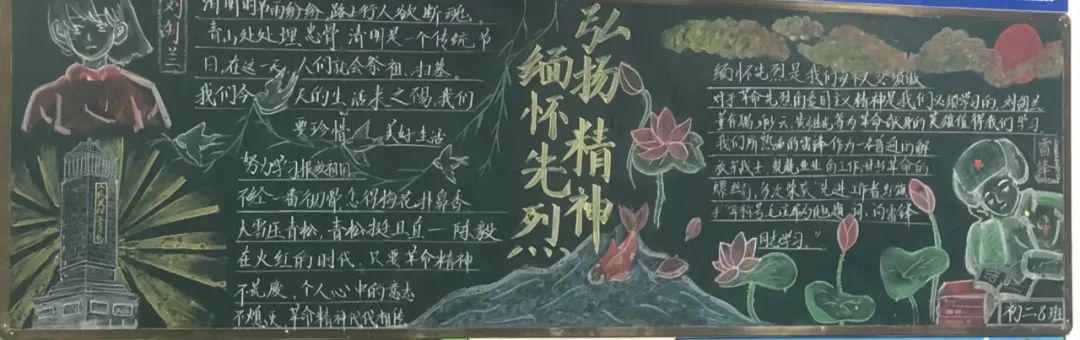 刘胡兰
清明时节雨纷纷,路上行人欲断魂。
青山处处埋忠骨 清明是一个传统节
日,在这一天 人们就会祭祖、扫墓。
我们今 天的生活来之 我们
要珍惜 美好生活
努力学习报效祖国
不经一番彻骨 怎得梅花扑鼻香
大雪压青松,青松挺且直—陈毅
在火红的时代,只要革命精神
不荒废,个人心中的意志
不 灭 革命精神代代相传
弘扬精神
缅怀先烈
缅怀先烈是我们每人必须做
对于革命先烈的爱国主义精神是我们必须学习的,刘胡兰
董存瑞、邱少云、黄继光等为革命献身的英雄值得我们学习
我们所熟知的雷锋作为一名普通的解
放军战士,兢兢业业的工作,甘当革命的
螺丝钉,多次荣获先进工作者
毛主席为他题词,向雷锋
同志学习。”
雷锋
初二.8班